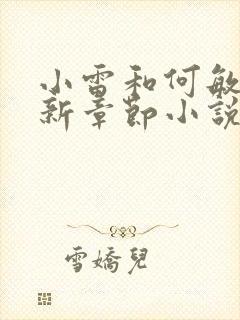 小雷和何敏
新章節小說
雪嬌兒